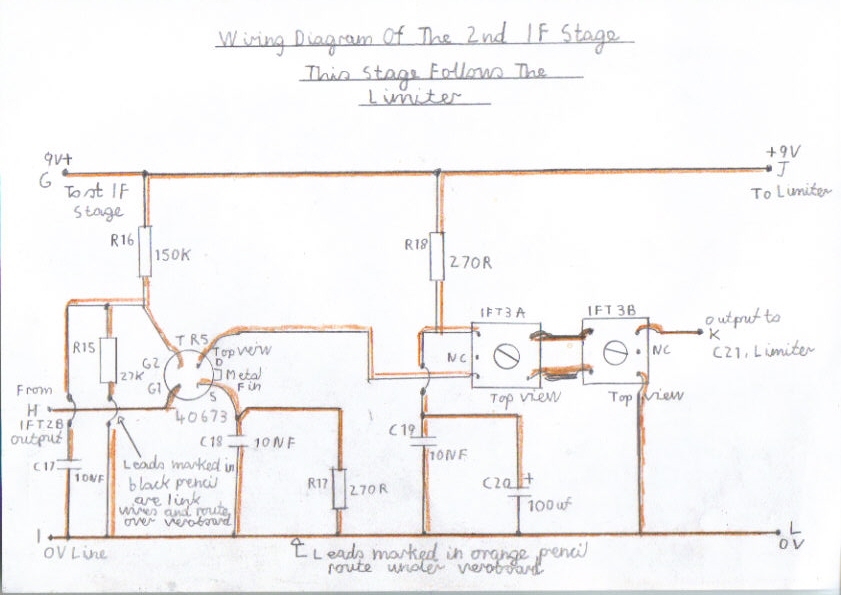 Wiring Diagram Of The 2nd IF Stage
This Stage Follows The
Limiter
9V+
G
To st IF
Stage
+9V
J
To Limiter
R16
150K
R18
270R
IFT3A
IFT3B
Output to
K
C21, Limiter
NC
NC
Top view
Top view
TR5
Top view
D
Metal
Fin
S
G2
G1
40673
R15
27K
From
H
IFT2B
output
C17
10NF
Leads marked in
black pencil
are link
wires and route
over veroboard
C18
10NF
R17
270R
C19
10NF
C20
+
100uf
I
0V Line
L
0V
Leads marked in orange pencil
route under veroboard